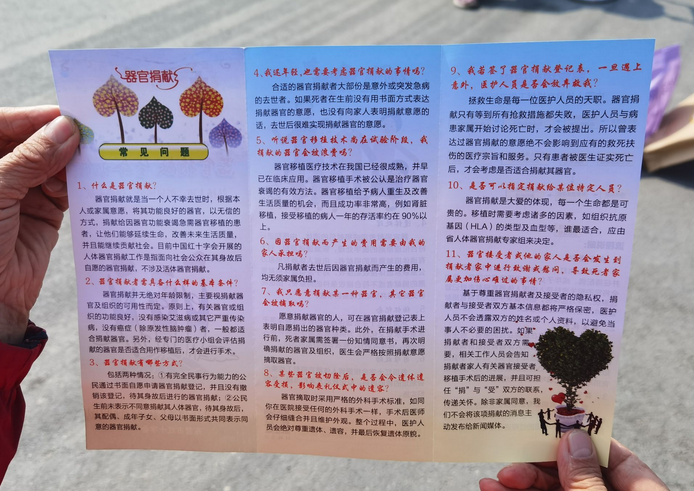 器官捐献
常见问题
1、什么是器官捐献?
器官捐献就是当一个人不幸去世时,根据本
人或家属意愿,将其功能良好的器官,以无偿的
方式,捐献给因器官功能衰竭急需器官移植的患
者,让他们能够延续生命,改善未来生活质量,
并且能继续贡献社会。目前中国红十字会开展的
人体器官捐献工作是指面向社会公众在其身故后
自愿的器官捐献,不涉及活体器官捐献。
2、器官捐献者需具备什么样的基本条件?
器官捐献并无绝对年龄限制,主要视捐献器
官及组织的可用性而定。原则上,有关器官或组
织的功能良好,没有感染艾滋病或其它严重传染
病,没有癌症(除原发性脑肿瘤)者,一般都适
合捐献器官。另外,经专门的医疗小组会评估捐
献的器官是否适合用作移植后,才会进行手术。
3、器官捐献有哪些方式?
包括两种情况:①有完全民事行为能力的公
民通过书面自愿申请器官捐献登记,并且没有撤
销该登记,待其身故后进行的器官捐献;②公民
生前未表示不同意捐献其人体器官,待其身故后,
其配偶、成年子女、父母以书面形式共同表示同
意的器官捐献。
4、我还年轻,也需要考虑器官捐献的事情吗?
合适的器官捐献者大部份是意外或突发急病
的去世者。如果死者在生前没有用书面方式表达
捐献器官的意愿,也没有向家人表明捐献意愿的
话,去世后很难实现捐献者的意愿。
5、听说器官移植技术尚在试验阶段,我
捐献的器官会被浪费吗?
器官移植医疗技术在我国已经很成熟,并早
已在临床应用。器官移植手术被公认是治疗器官
衰竭的有效方法。器官移植给予病人重生及改善
生活质量的机会,而且成功率非常高,例如肾脏
移植,接受移植的病人一年的存活率约在 90%以
上。
6、因器官捐献而产生的费用需要由我的
家人承担吗?
凡捐献者去世后因器官捐献而产生的费用,
均无须家属负担。
7、我只愿意捐献某一种器官,其它器官
会被摘取吗?
愿意捐献器官的人,可在器官捐献登记表上
表明自愿捐出的器官种类。此外,在捐献手术进
行前,死者家属需签署一份知情同意书,再次明
确捐献的器官及组织,医生会严格按照捐献意愿
摘取器官。
8、某些器官被切除后,是否会令遗体遗
容受损,影响丧礼仪式中的遗容?
器官摘取时采用严格的外科手术标准,如同
你在医院接受任何的外科手术一样,手术后医师
会仔细缝合并且维护外观。整个过程中,医护人
员会绝对尊重遗体、遗容,并最后恢复遗体原貌。
9、我若签了器官捐献登记表,一旦遇上
意外,医护人员是否会放弃救我?
拯救生命是每一位医护人员的天职。器官捐
献只有等到所有抢救措施都失败,医护人员与病
患家属开始讨论死亡时,才会被提出。所以曾表
达过器官捐献的意愿绝不会影响到应有的救死扶
伤的医疗宗旨和服务。只有患者被医生证实死亡
后,才会考虑是否适合捐献其器官。
10、是否可以指定捐献给某位特定人员?
器官捐献是大爱的体现,每一个生命都是可
贵的。移植时需要考虑诸多的因素,如组织抗原
基因(HLA)的类型及血型等,谁最适合,应由
省人体器官捐献专家组来决定。
11、器官接受者或他的家人是否会发生到
捐献者家中进行致谢或慰问,导致死者家
属更加伤心难过的事情?
基于尊重器官捐献者及接受者的隐私权,捐
献者与接受者双方基本信息都将严格保密,医护
人员不会透露双方的姓名或个人资料,以避免当
事人不必要的困扰。如果
捐献者和接受者双方需
要,相关工作人员会告知
捐献者家人有关器官接受者
移植手术后的进展,并且可担
任“捐”与“受”双方的联系,
传递关怀。除非家属同意,我
们不会将该项捐献的消息主
动发布给新闻媒体。